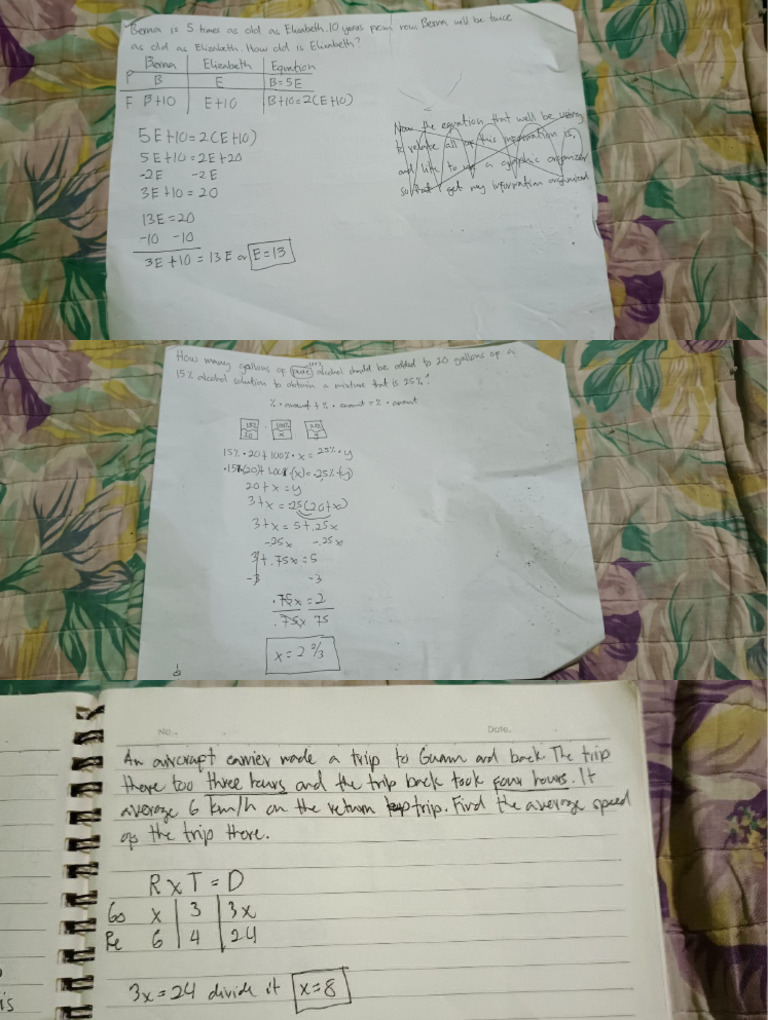 Berna is 5 times as old as Elizabeth. 10 years from now Berna will be twice
as old as Elizabeth. How old is Elizabeth?
Berna Elizabeth Equation
P B E B=5E
F B+10 E+10 B+10=2(E+10)
5E+10=2(E+10)
5E+10=2E+20
-2E -2E
3E+10=20
13E=20
-10 -10
3E+10=13E or E=13
Now the equation that will be using
to relate all of this information is,
and like to a graphic organizer
so that I get my information organized
How many gallons of pure alcohol should be added to 20 gallons of a
15% alcohol solution to obtain a mixture that is 25%?
%·amount+%·amount=%·amount
15% 20 100% x y
15%·20+100%·x=25%·y
20+x=y
3+x=.25(20+x)
3+x=5+.25x
-.25x -.25x
3+.75x=5
-3 -3
.75x=2
.75x 75
x=2 2/3
No. Date.
An aircraft carrier made a trip to Guam and back. The trip
there too three hours and the trip back took four hours. It
average 6 km/h on the return trip. Find the average speed
of the trip there.
R x T = D
Go x 3 3x
Re 6 4 24
3x=24 divide it x=8
is